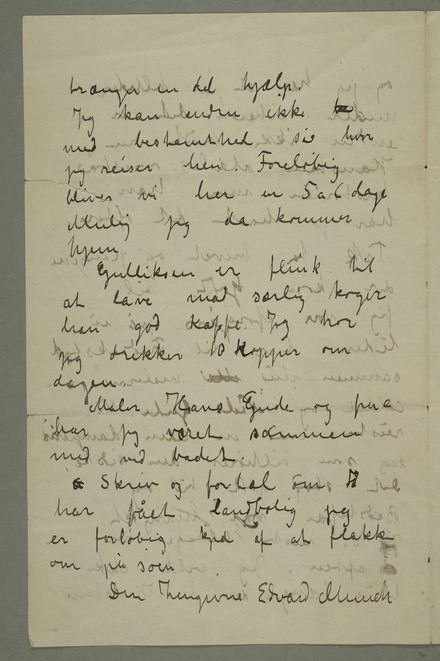 trænger en del hjælp.
Jeg kan endnu ikke
med bestemthed si hvor
jeg reiser hen. Foreløbig
bliver vi her en 5 a 6 dage
Mulig jeg da kommer
hjem
Gulliksen er flink til
at lave mad særlig koger
han god kaffe Jeg tror
jeg drikker 8 kopper om
dagen
Maler Hans Gude og frue
har jeg været sammen
med ved badet.
Skrev og fortæl om
har fået Landbolig jeg
er forløbig kjed af at flakke
om på søen
Din hengivne Edvard Munch